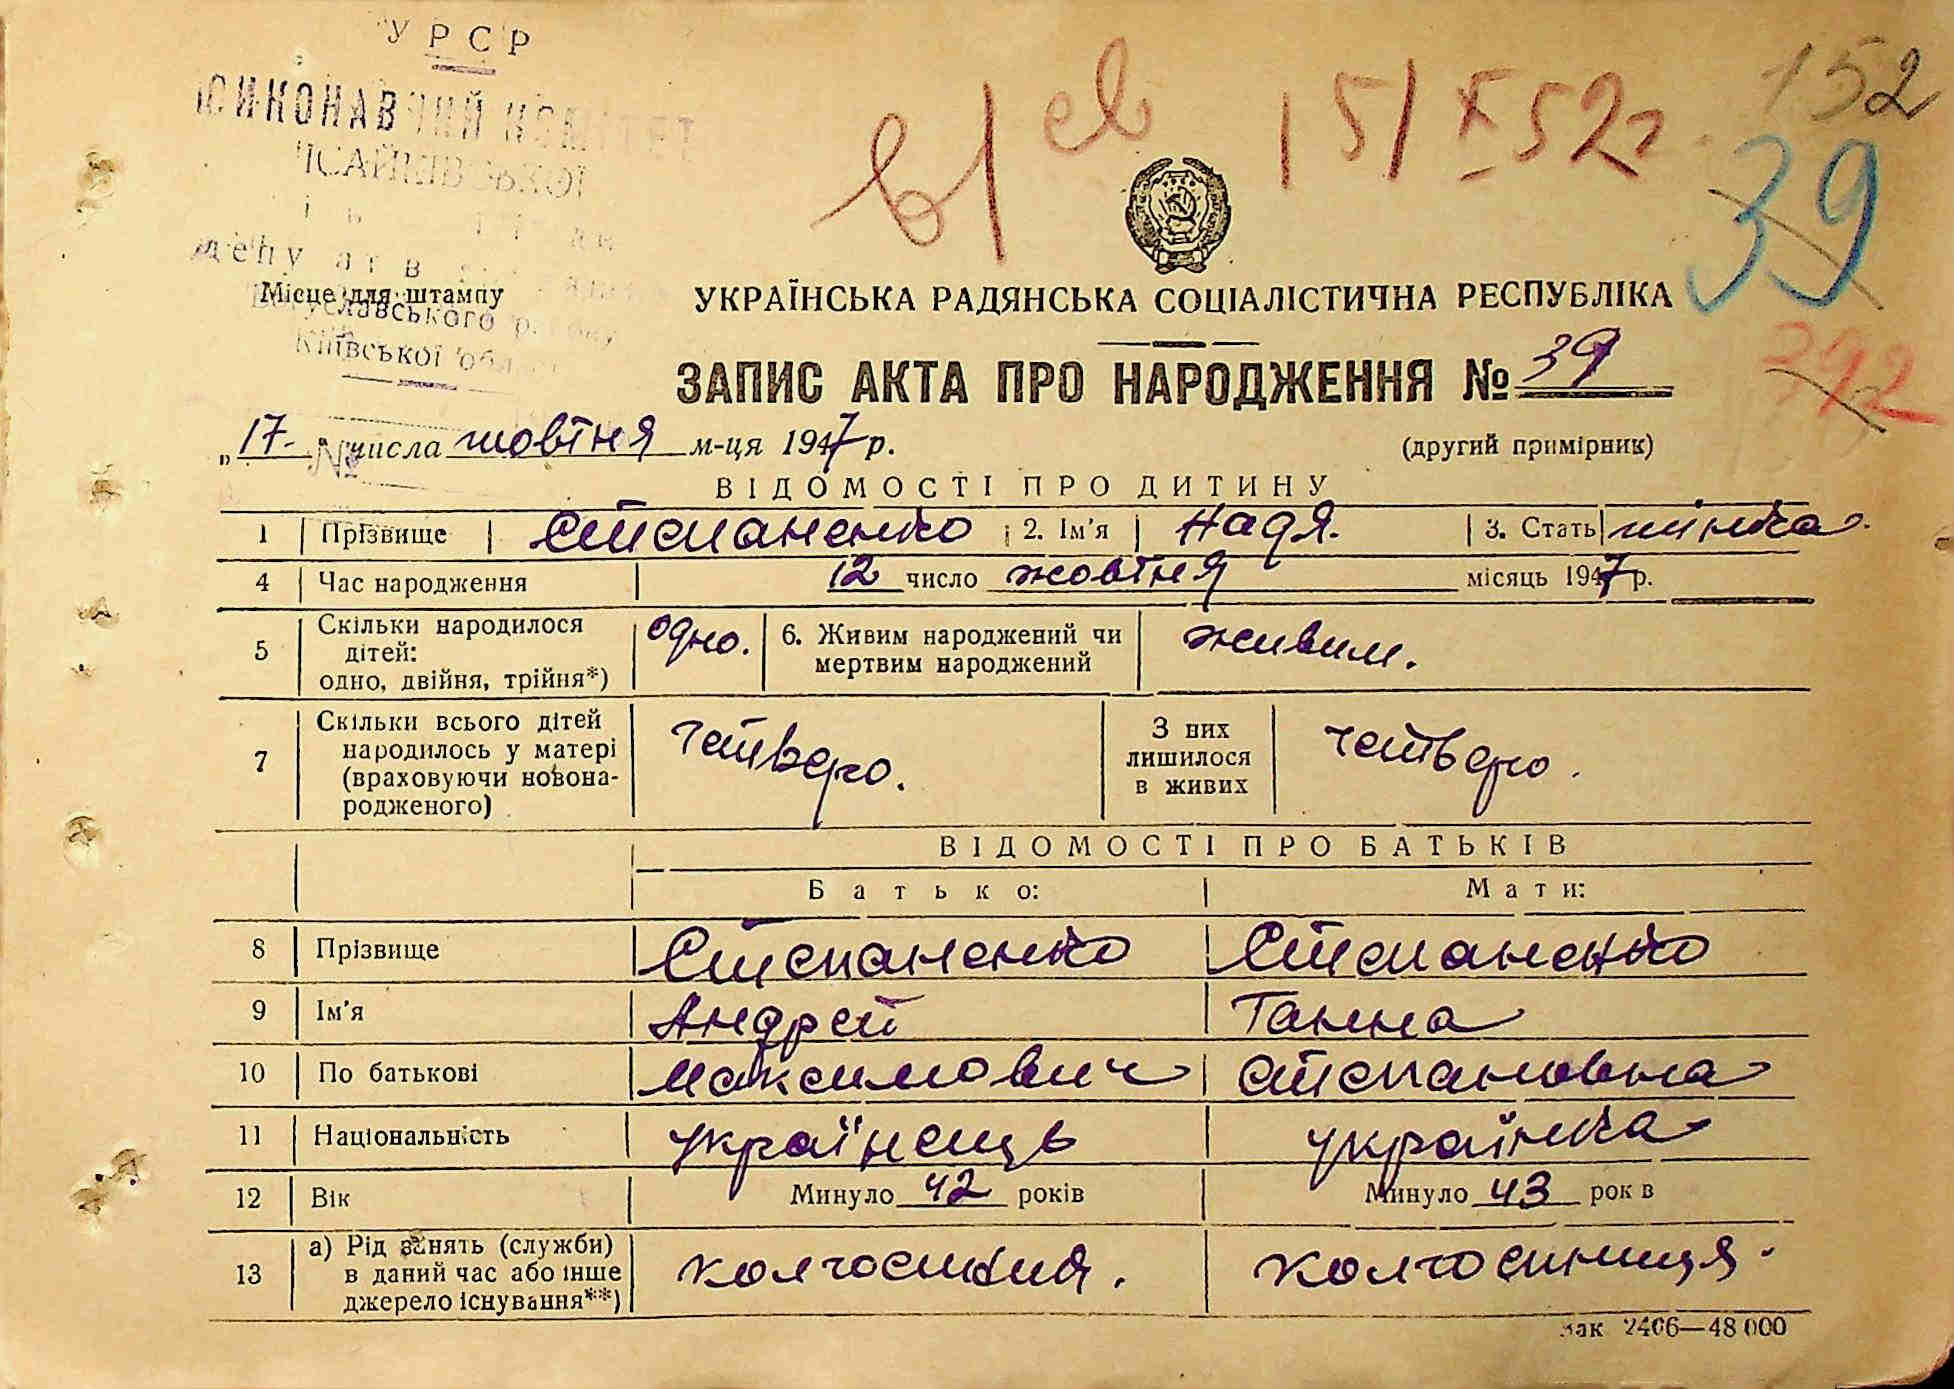 УРСР
ВИКОНАВЧИЙ КОМІТЕТ
ІСАЙКІВСЬКОЇ
депутатів
Місце для штампу
Богуславського району
Київської області
в/св 15/X 52г.
152
39
392
УКРАЇНСЬКА РАДЯНСЬКА СОЦІАЛІСТИЧНА РЕСПУБЛІКА
ЗАПИС АКТА ПРО НАРОДЖЕННЯ № 39
„17" числа жовтня м-ця 1947 р. (другий примірник)
№
ВІДОМОСТІ ПРО ДИТИНУ
1 Прізвище Степаненко 2. Ім'я Надя. 3. Стать жінка.
4 Час народження 12 число жовтня місяць 1947 р.
5 Скільки народилося дітей: одно, двійня, трійня*) одно. 6. Живим народжений чи мертвим народжений живим.
7 Скільки всього дітей народилось у матері (враховуючи новонародженого) четверо. З них лишилося в живих четверо.
ВІДОМОСТІ ПРО БАТЬКІВ
Батько: Мати:
8 Прізвище Степаненко Степаненко
9 Ім'я Андрей Ганна
10 По батькові Максимович Степановна
11 Національність українець українка
12 Вік Минуло 42 років Минуло 43 рок в
13 а) Рід занять (служби) в даний час або інше джерело існування**) колгоспник. колгоспниця.
Зак 2406—48 000